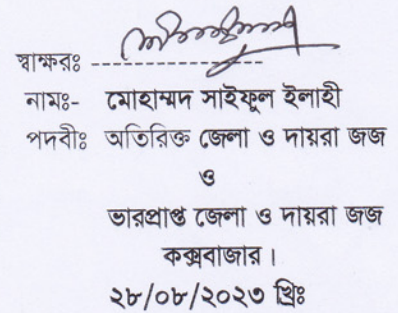 স্বাক্ষরঃ
নামঃ- মোহাম্মদ সাইফুল ইলাহী
পদবীঃ অতিরিক্ত জেলা ও দায়রা জজ
ও
ভারপ্রাপ্ত জেলা ও দায়রা জজ
কক্সবাজার।
২৮/০৮/২০২৩ খ্রিঃ